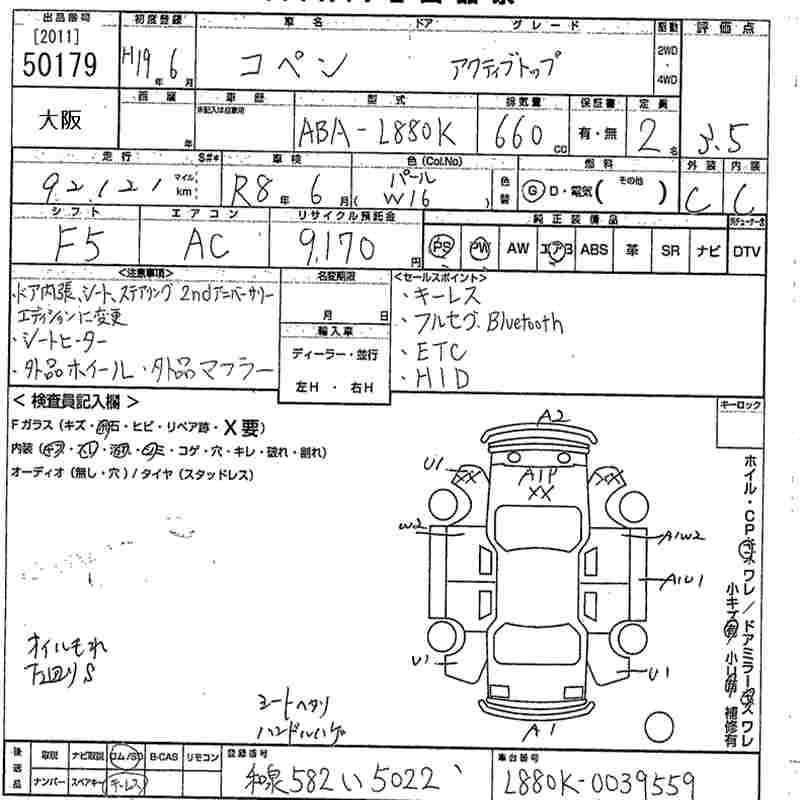 出品番号 初度登録 車名 ドア グレード 駆動 評価点
[2011]
50179 H19年 6月 コペン アクティブトップ 2WD・4WD 3.5
大阪 西暦 年 車歴 未記入は自家用 型式 ABA-L880K 排気量 660cc 保証書 有・無 定員 2名
走行 S#* 車検 色(Col.No) 燃料 外装 内装
92,121 マイル km R8年 6月 パール (W16) 色替 G D・電気 (その他) C C
シフト エアコン リサイクル預託金 純正装備品
F5 AC 9,170円 PS PW AW エアB ABS 革 SR ナビ DTV
<注意事項> 名変期限 <セールスポイント>
・ドア内張、シート、ステアリング 2ndアニバーサリー
エディションに変更
・シートヒーター
・外品ホイール・外品マフラー
月 日
輸入車
ディーラー・並行
左H・右H
・キーレス
・フルセグ.Bluetooth
・ETC
・HID
<検査員記入欄> キーロック
Fガラス (キズ・飛石・ヒビ・リペア跡・X要)
内装 (キズ・スレ・汚れ・シミ・コゲ・穴・キレ・破れ・割れ)
オーディオ (無し・穴) / タイヤ (スタッドレス)
A2
U1 XX A1P XX XX
W2 A1W2
A1U1
U1 U1
A1
ホイル・CP キズ ワレ / ドアミラー キズ ワレ
小キズ有 小凹有 補修有
オイルもれ
下回りS
シートヘタリ
ハンドルハゲ
後送品 取説 ナビ取説 ロム/SD B-CAS リモコン 登録番号 車台番号
ナンバー スペアキー キーレス 和泉 582 い 5022 L880K-0039559